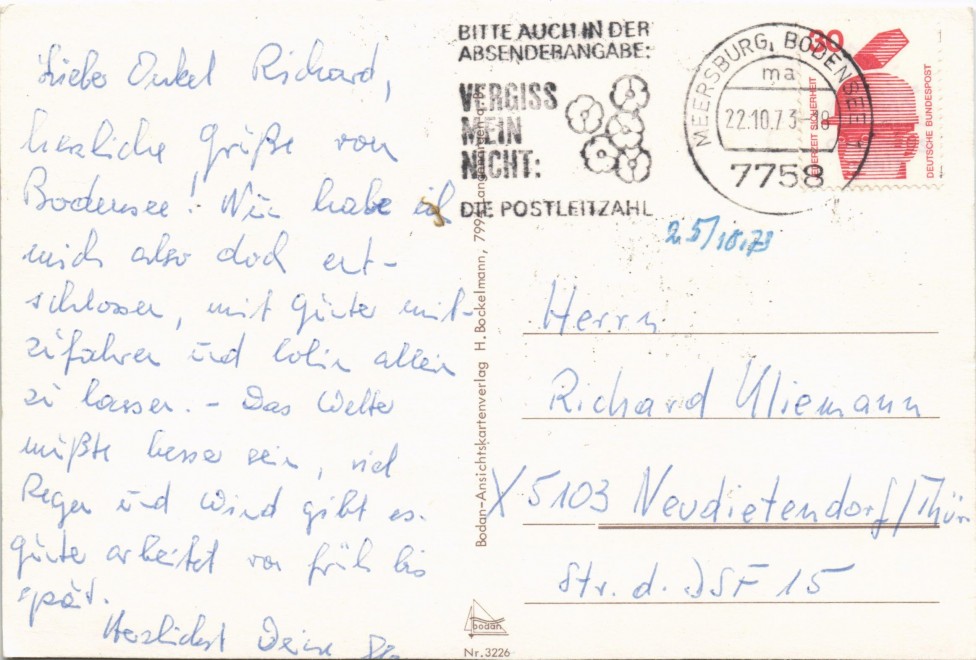 Liebe Onkel Richard,
herzliche Grüße vom
Bodensee! Nun habe ich
mich also doch ent-
schlossen, mit Günter mit-
zufahren und allein
zu lassen. – Das Wetter
müßte besser sein, viel
Regen und Wind gibt es.
Günter arbeitet von früh bis
spät.
Herzlichst Deine
BITTE AUCH IN DER
ABSENDERANGABE:
VERGISS
MEIN
NICHT:
DIE POSTLEITZAHL
MEERSBURG, BODENSEE
ma
22.10.73-18
7758
30
JEDERZEIT SICHERHEIT
DEUTSCHE BUNDESPOST
25/10.73
Herrn
Richard Kliemann
X 5103 Neudietendorf/Thür
Str. d. DSF 15
Bodan-Ansichtskartenverlag H. Bockelmann, 799
bodan
Nr. 3226